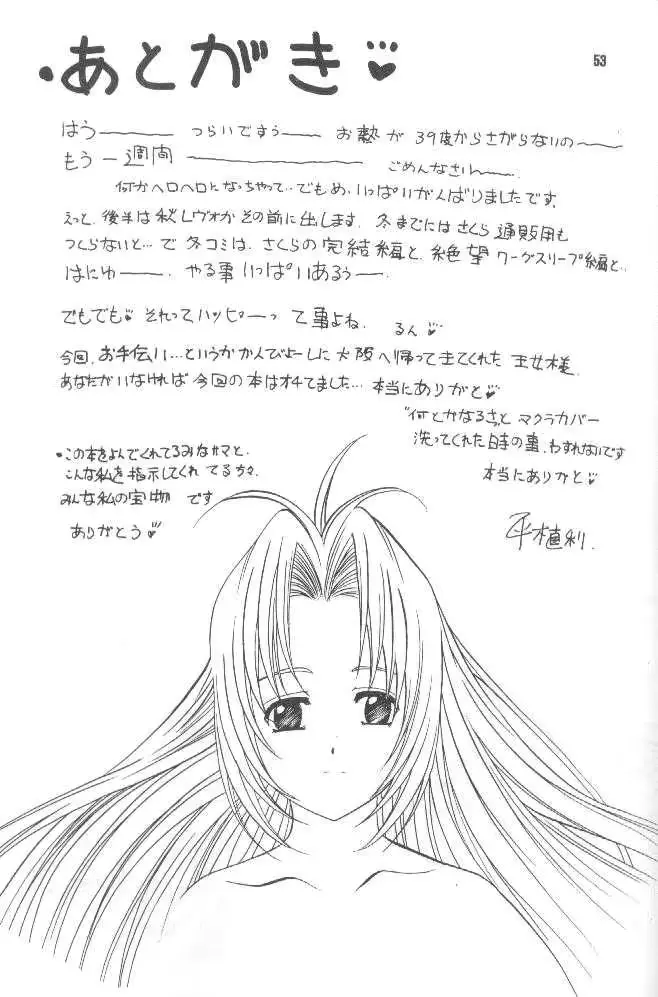 ・あとがき♡
53
はう―― つらいですぅ―― お熱が 39度からさがらないの――
もう一週間 ―――― ごめんなさい――.
何かヘロヘロになっちゃって‥でもめ、いっぱいがんばりましたです.
えっと、後半は秋レヴォかその前に出します. 冬までにはさくら通販用も
つくらないと…で 冬コミは、さくらの完結編と、絶望 ワーグスリープ編と‥
はにゅ――. やる事いっぱいあるぅ――.
でもでも♡ それってハッピーって事よね. るん♡
今回、お手伝い…というかかんびょーした 大阪へ帰って来てくれた 王女様.
あなたがいなければ 今回の本はオチてました… 本当にありがと♡
"何とかなるさ"と マクラカバー
洗ってくれた時の事、わすれないです
本当にありがと♡
・この本をよんでくれてるみなサマと、
こんな私を指示してくれてる方々.
みんな私の宝物 です
ありがとう♡
平植利.